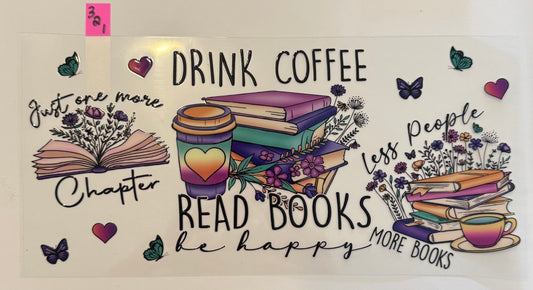 321
Just one more
Chapter
DRINK COFFEE
READ BOOKS
be happy
Less People
MORE BOOKS